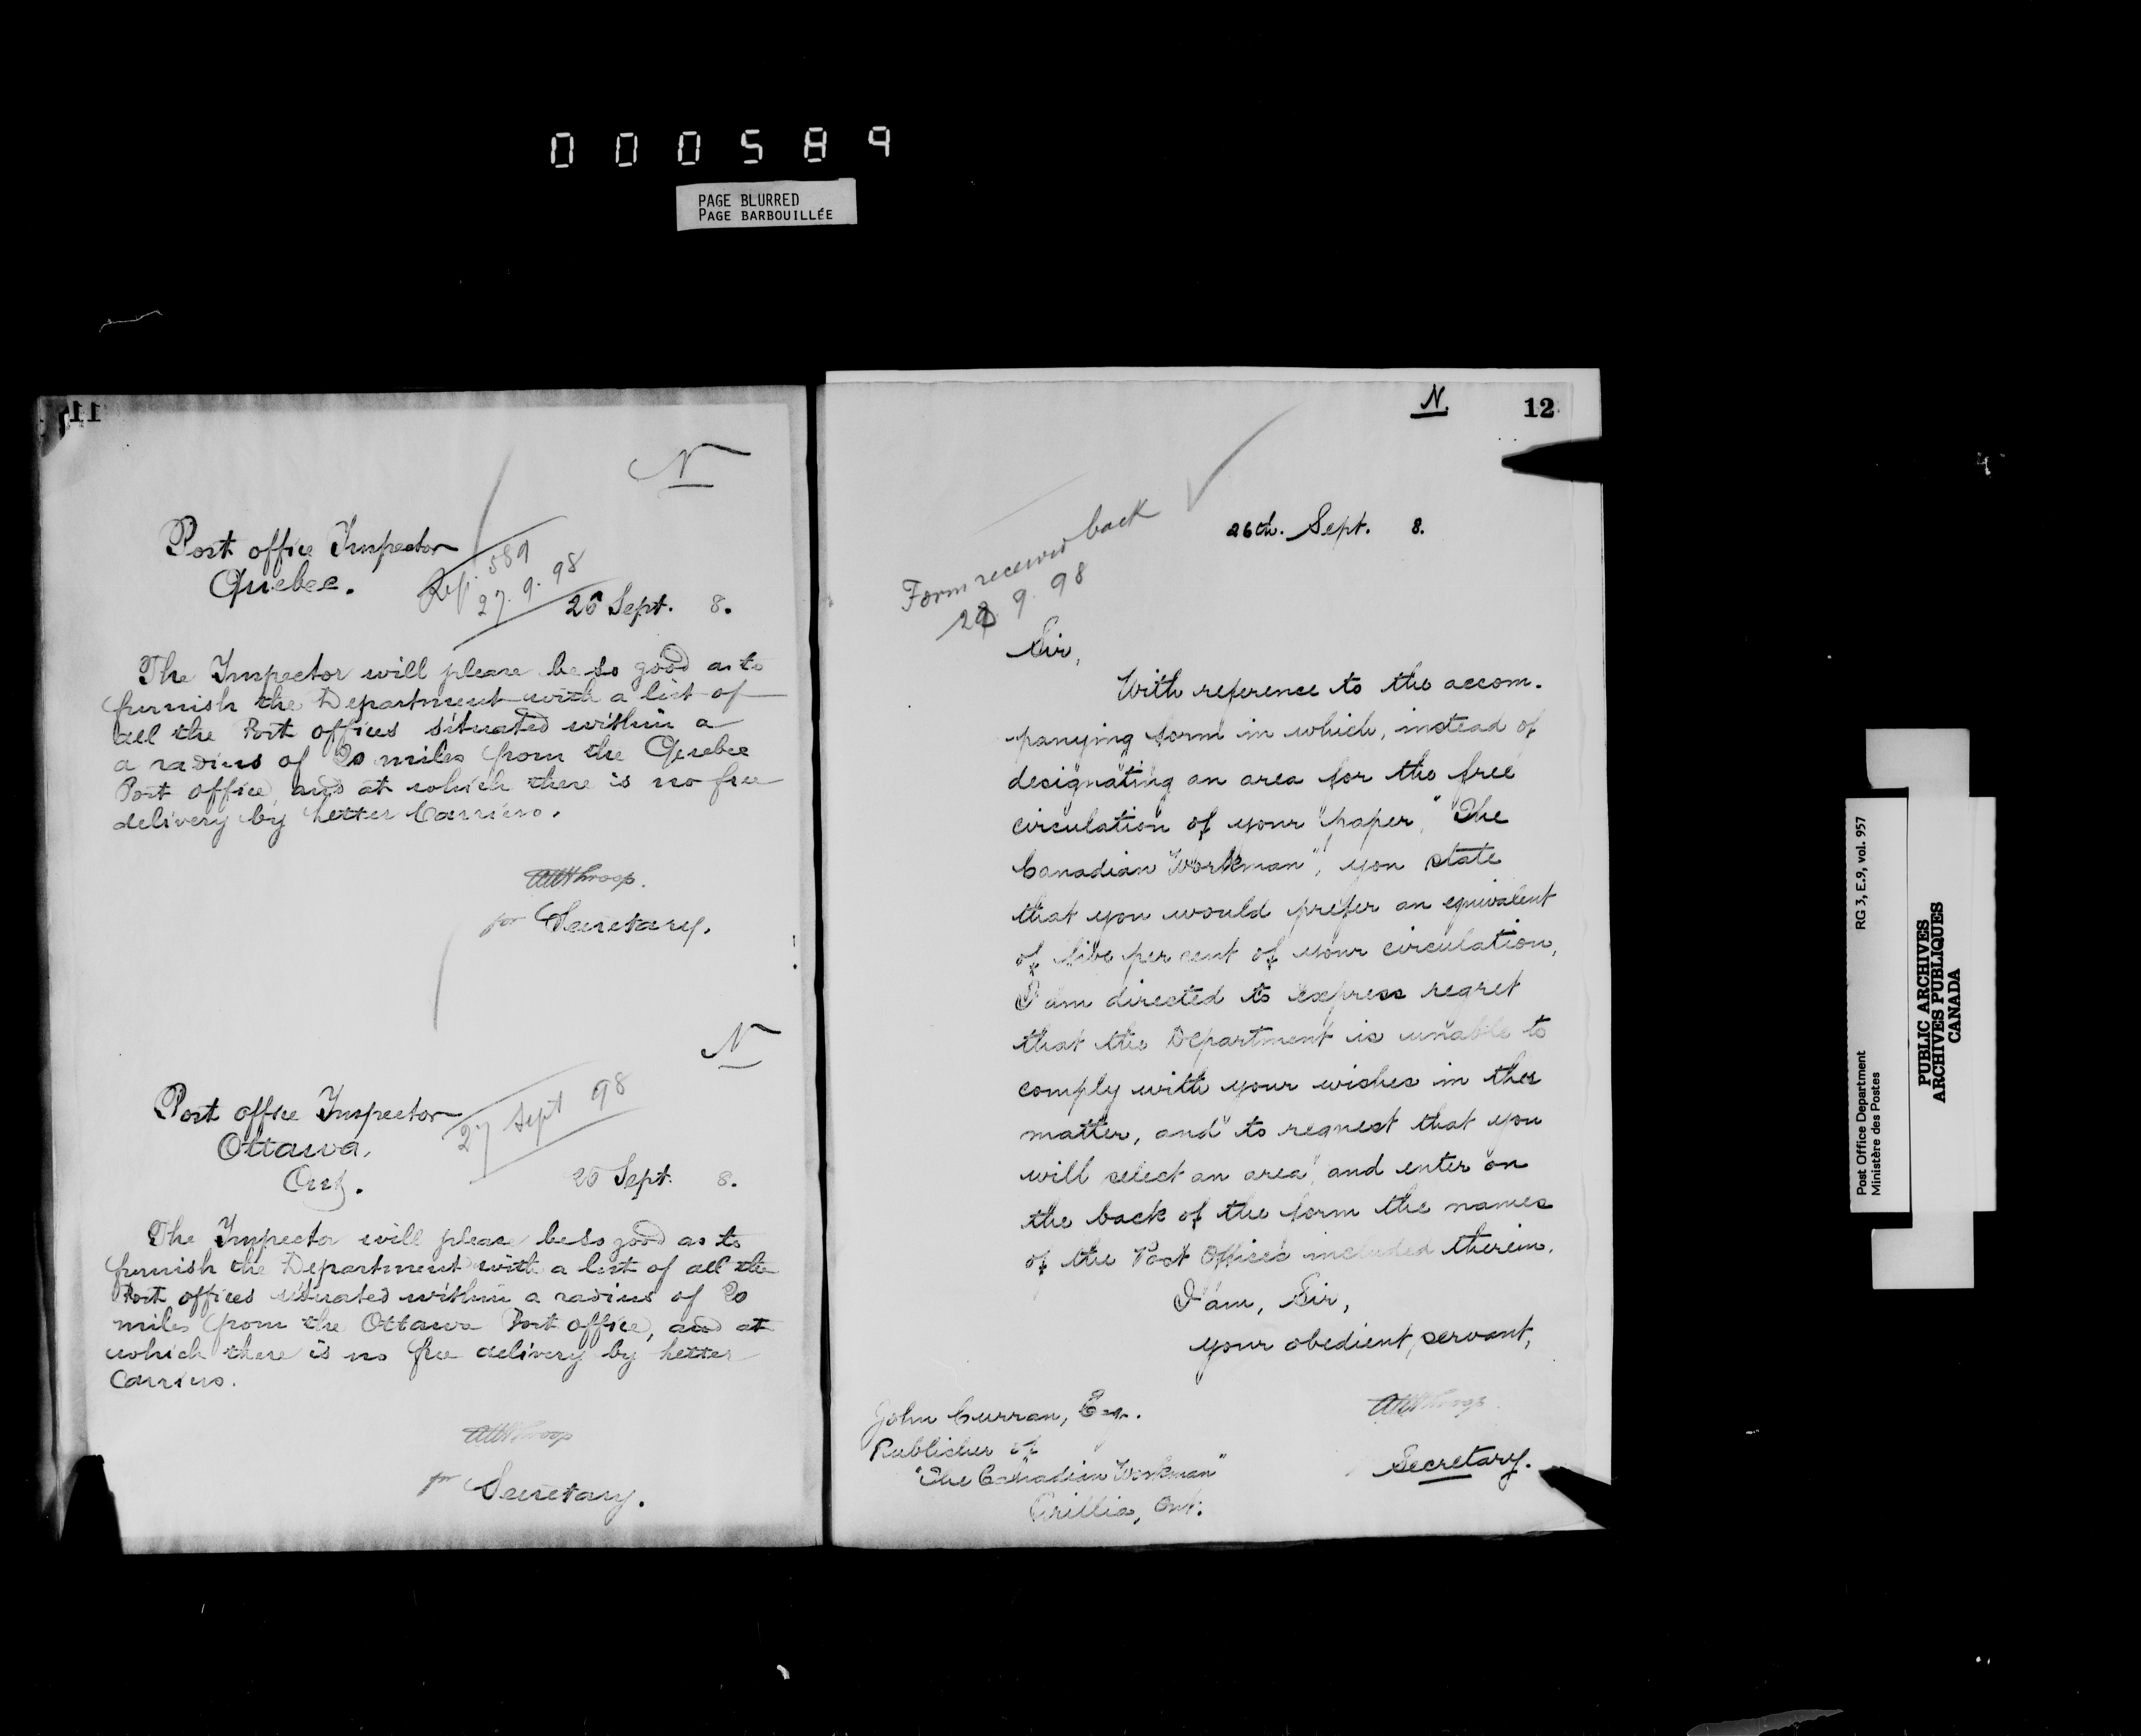 000589
PAGE BLURRED
PAGE BARBOUILLÉE
11
N
Post office Inspector
Quebec.
Ref. 589
27. 9. 98
26 Sept. 8.
The Inspector will please be so good as to
furnish the Department with a list of
all the Post offices situated within a
a radius of 20 miles from the Quebec
Post office, and at which there is no free
delivery by Letter Carriers.
for Secretary.
N
Post office Inspector
Ottawa,
Ont.
27 Sept 98
26 Sept. 8.
The Inspector will please be so good as to
furnish the Department with a list of all the
Post offices situated within a radius of 20
miles from the Ottawa Post office, and at
which there is no free delivery by Letter
Carriers.
for Secretary.
N. 12
Form received back
9. 98
26th. Sept. 8.
Sir,
With reference to the accom-
panying form in which, instead of
designating an area for the free
circulation of your paper, "The
Canadian Workman", you state
that you would prefer an equivalent
of five per cent of your circulation,
I am directed to express regret
that the Department is unable to
comply with your wishes in the
matter, and to request that you
will select an area, and enter on
the back of the form the names
of the Post Offices included therein.
I am, Sir,
your obedient, servant,
Secretary.
John Curran, Esq.
Publisher of
"The Canadian Workman"
Orillia, Ont.
Post Office Department RG 3, E.9, vol. 957
Ministère des Postes
PUBLIC ARCHIVES
ARCHIVES PUBLIQUES
CANADA